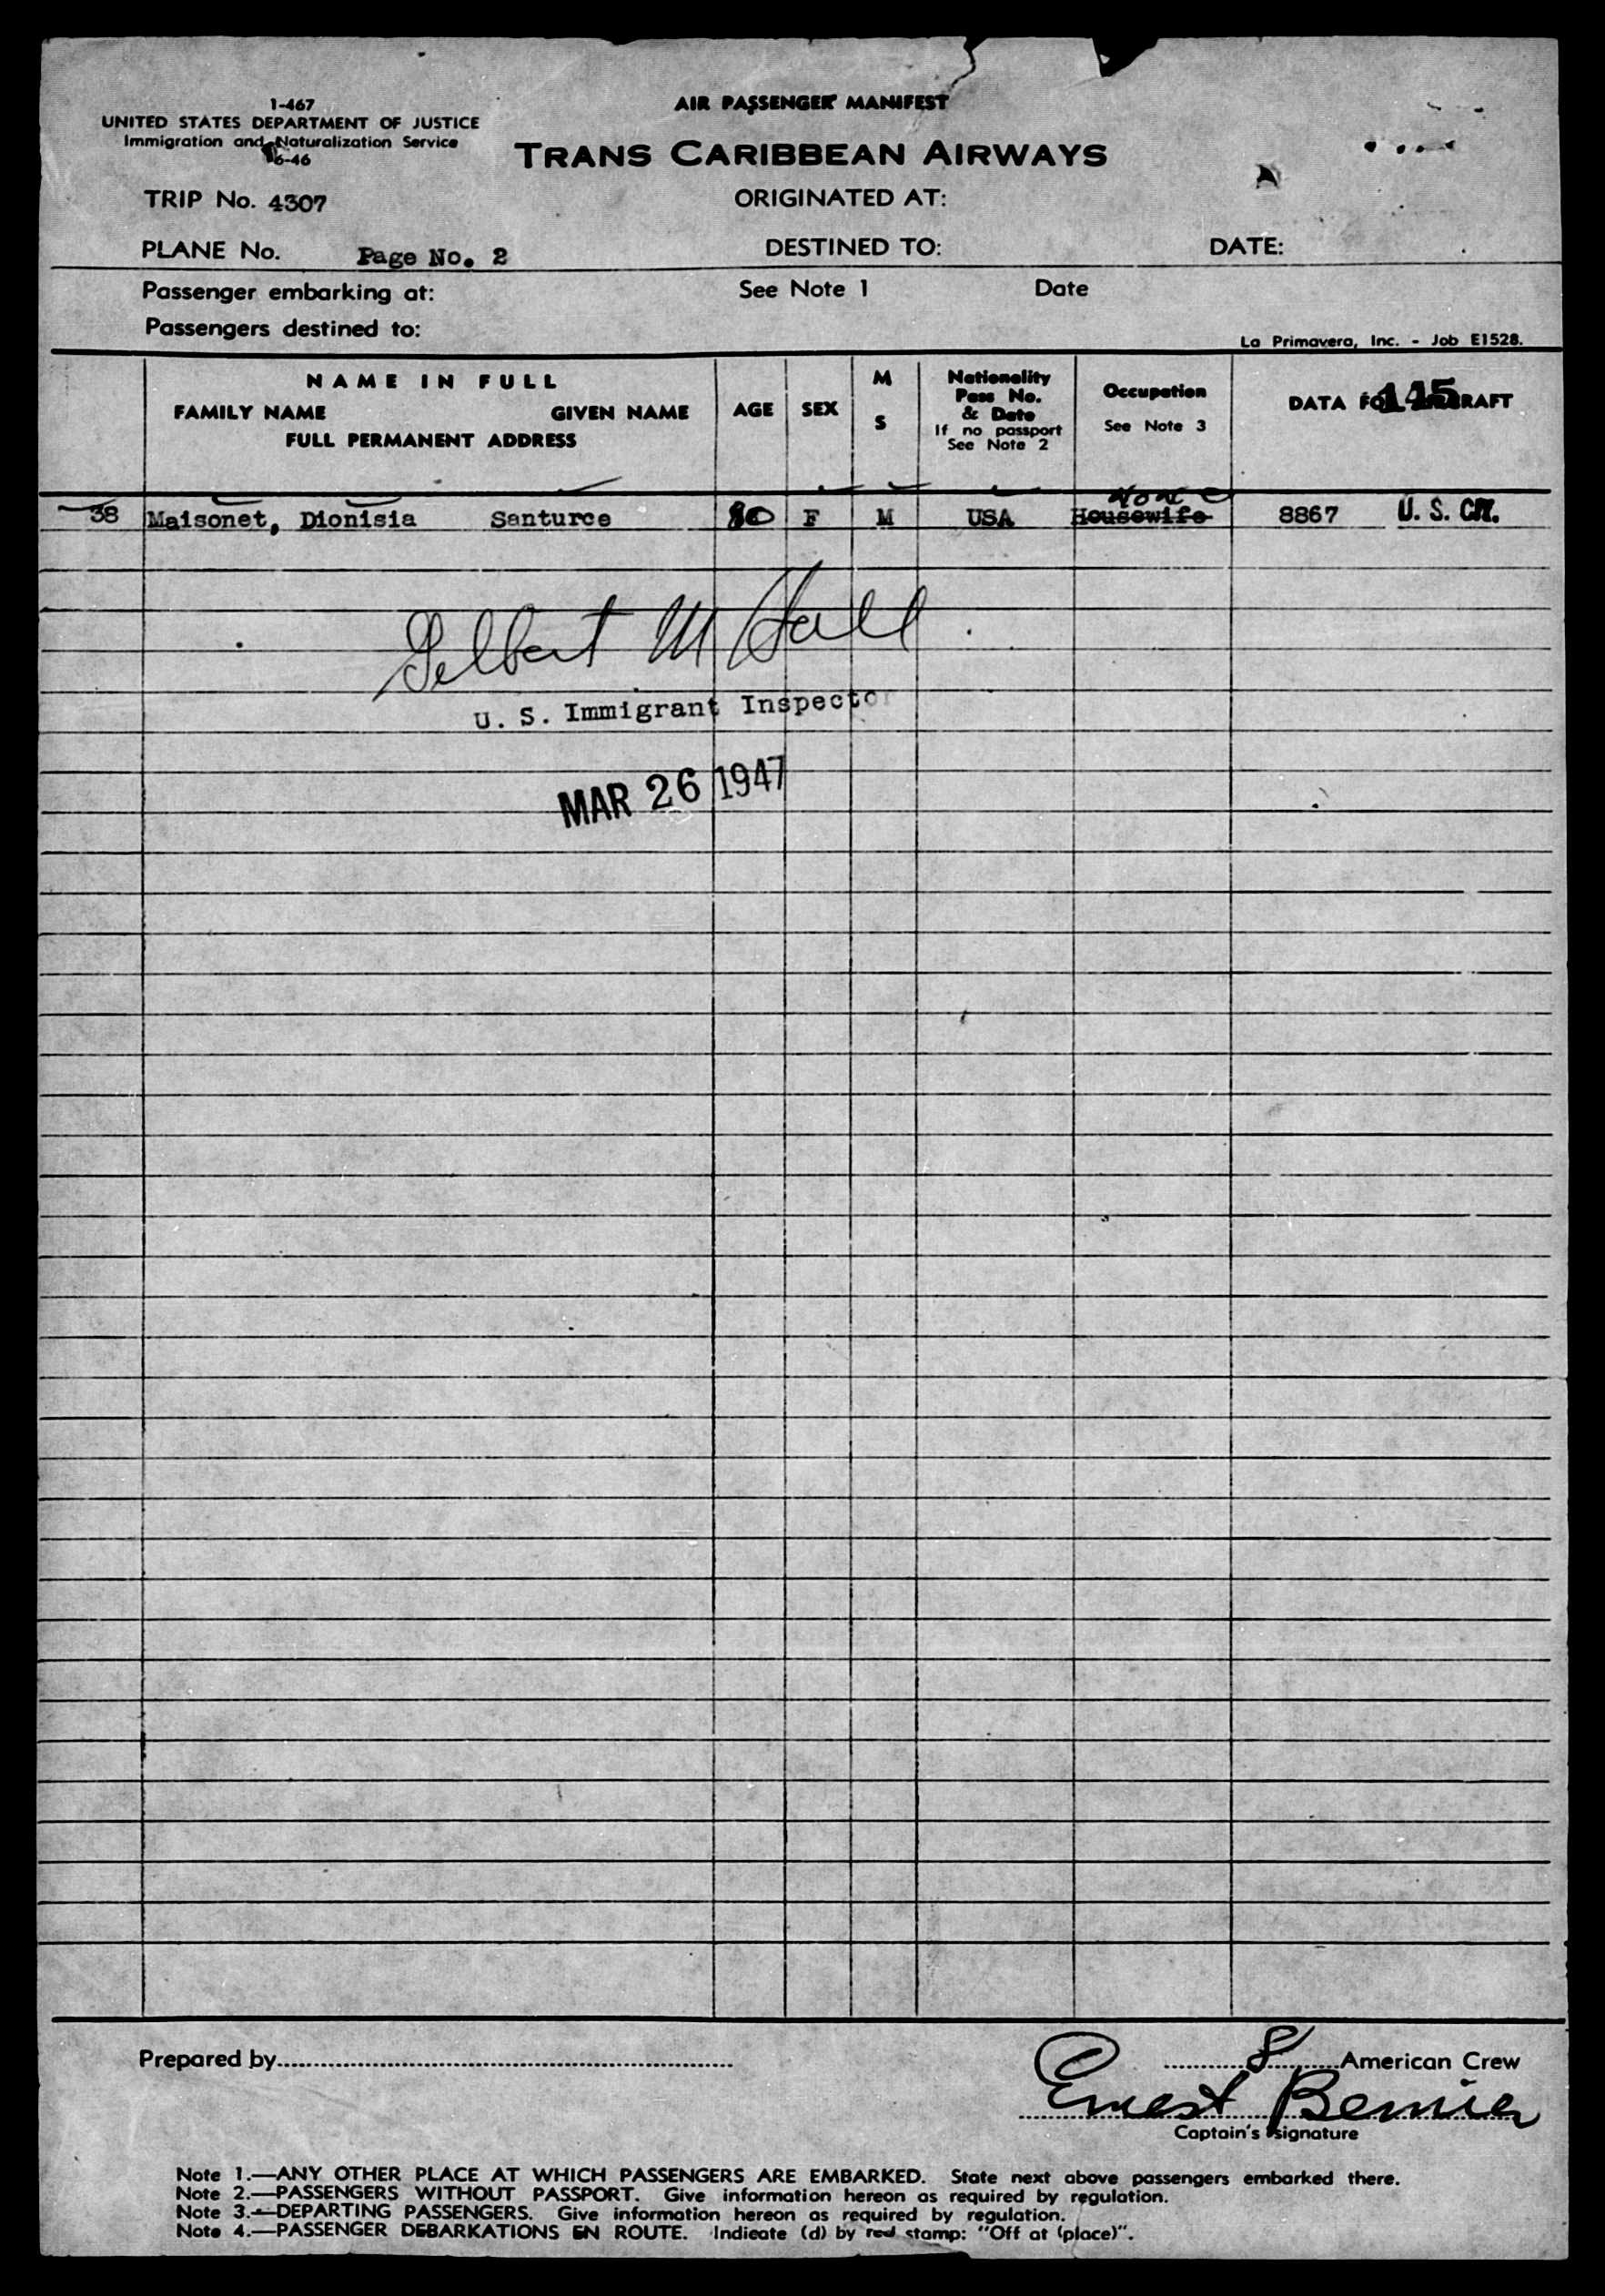 1-467
UNITED STATES DEPARTMENT OF JUSTICE
Immigration and Naturalization Service
6-46
AIR PASSENGER MANIFEST
TRANS CARIBBEAN AIRWAYS
TRIP No. 4307 ORIGINATED AT:
PLANE No. Page No. 2 DESTINED TO: DATE:
Passenger embarking at: See Note 1 Date
Passengers destined to:
La Primavera, Inc. - Job E1528.
NAME IN FULL
FAMILY NAME GIVEN NAME
FULL PERMANENT ADDRESS
AGE
SEX
M
S
Nationality
Pass No.
& Date
If no passport
See Note 2
Occupation
See Note 3
DATA FOR AIRCRAFT
145
None
38 Maisonet, Dionisia Santurce 80 F M USA Housewife 8867 U. S. CIT.
Gilbert M Hall
U. S. Immigrant Inspector
MAR 26 1947
Prepared by
8 American Crew
Ernest Bernier
Captain's signature
Note 1.—ANY OTHER PLACE AT WHICH PASSENGERS ARE EMBARKED. State next above passengers embarked there.
Note 2.—PASSENGERS WITHOUT PASSPORT. Give information hereon as required by regulation.
Note 3.—DEPARTING PASSENGERS. Give information hereon as required by regulation.
Note 4.—PASSENGER DEBARKATIONS EN ROUTE. Indicate (d) by red stamp: "Off at (place)".